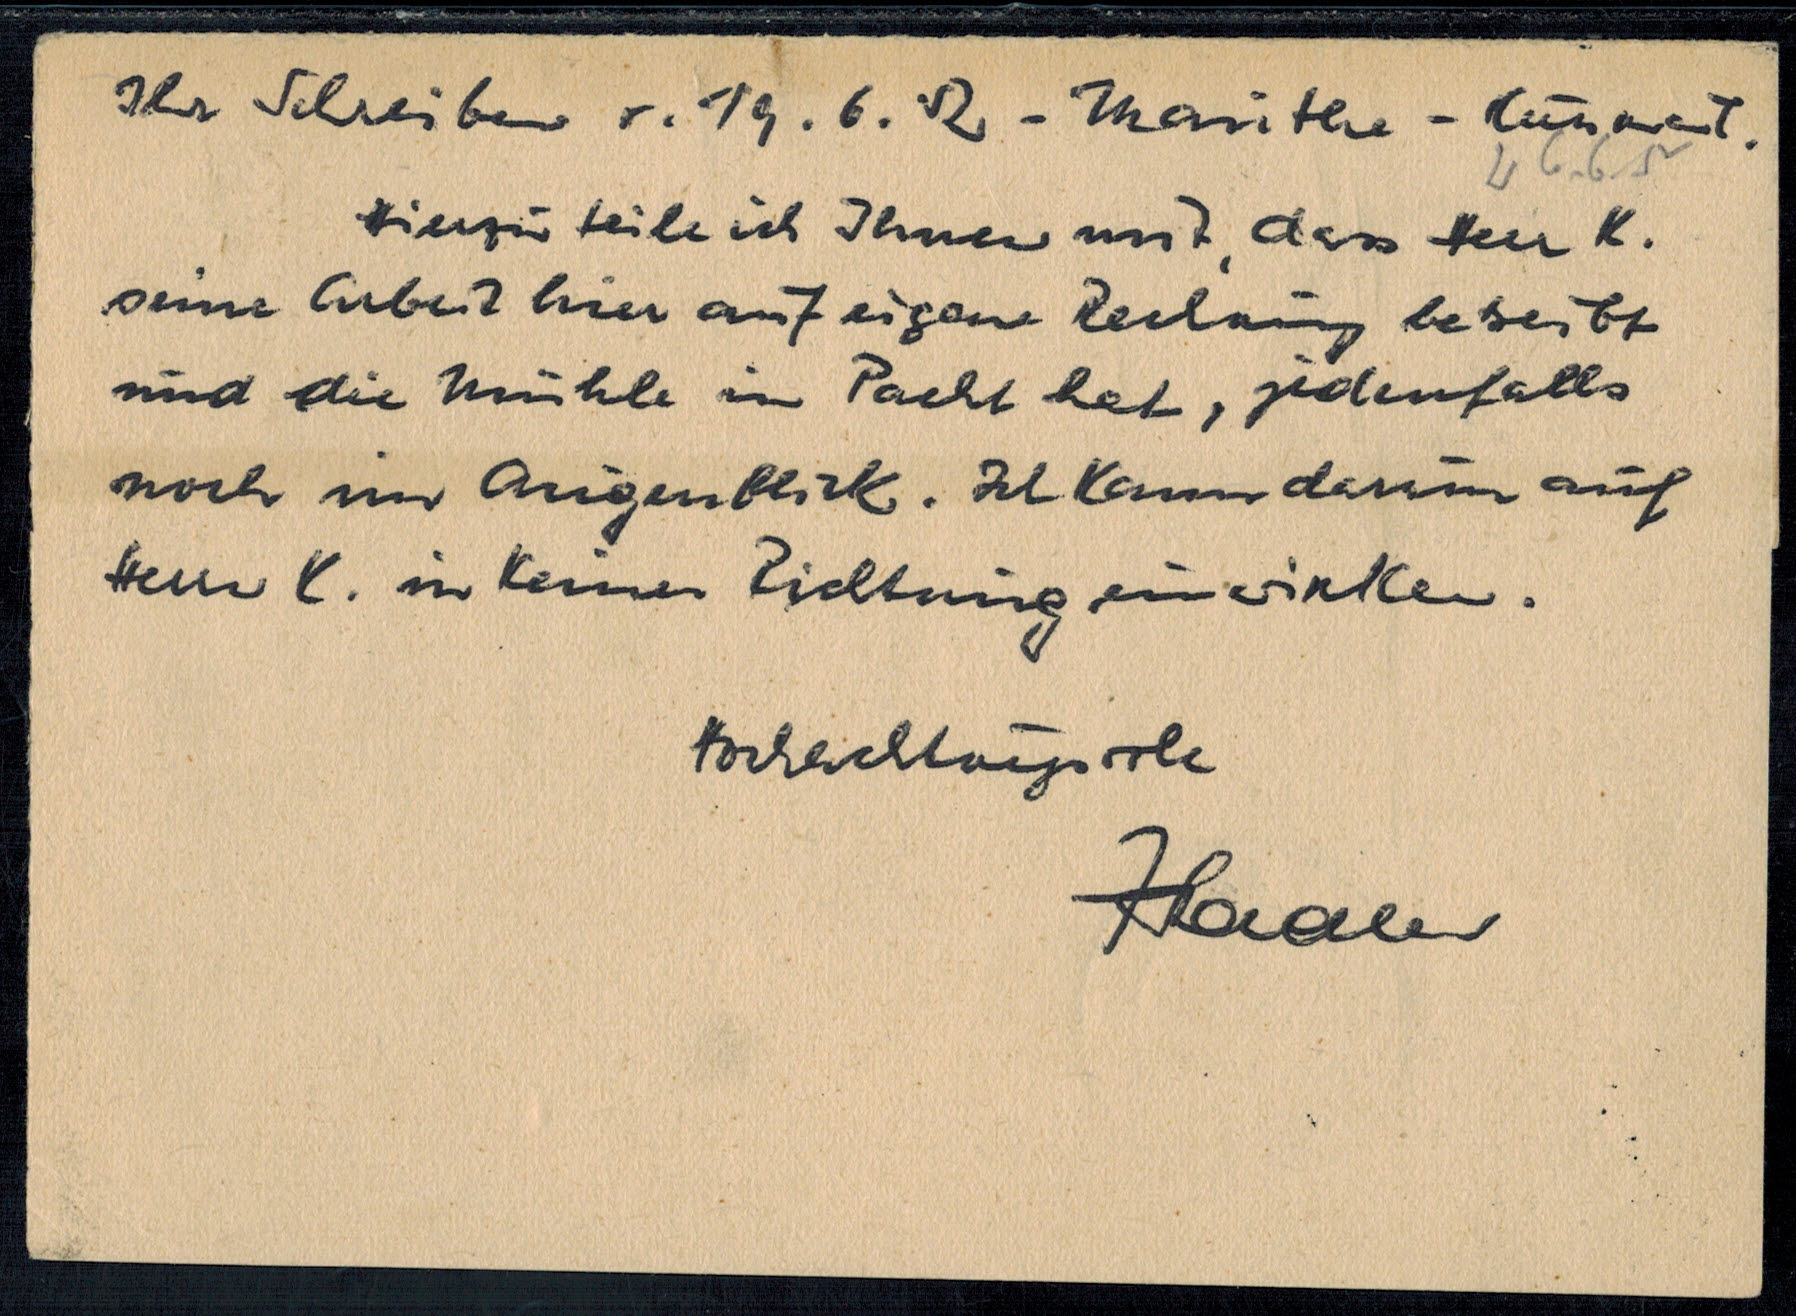 Ihr Schreiben v. 19.6.52 -
Hierzu teile ich Ihnen mit, dass Herr K.
seine Arbeit hier auf eigene Rechnung betreibt
und die Mühle in Pacht hat, jedenfalls
noch im Augenblick. Ich kann darum auf
Herrn K. in keiner Richtung einwirken.
Hochachtungsvoll